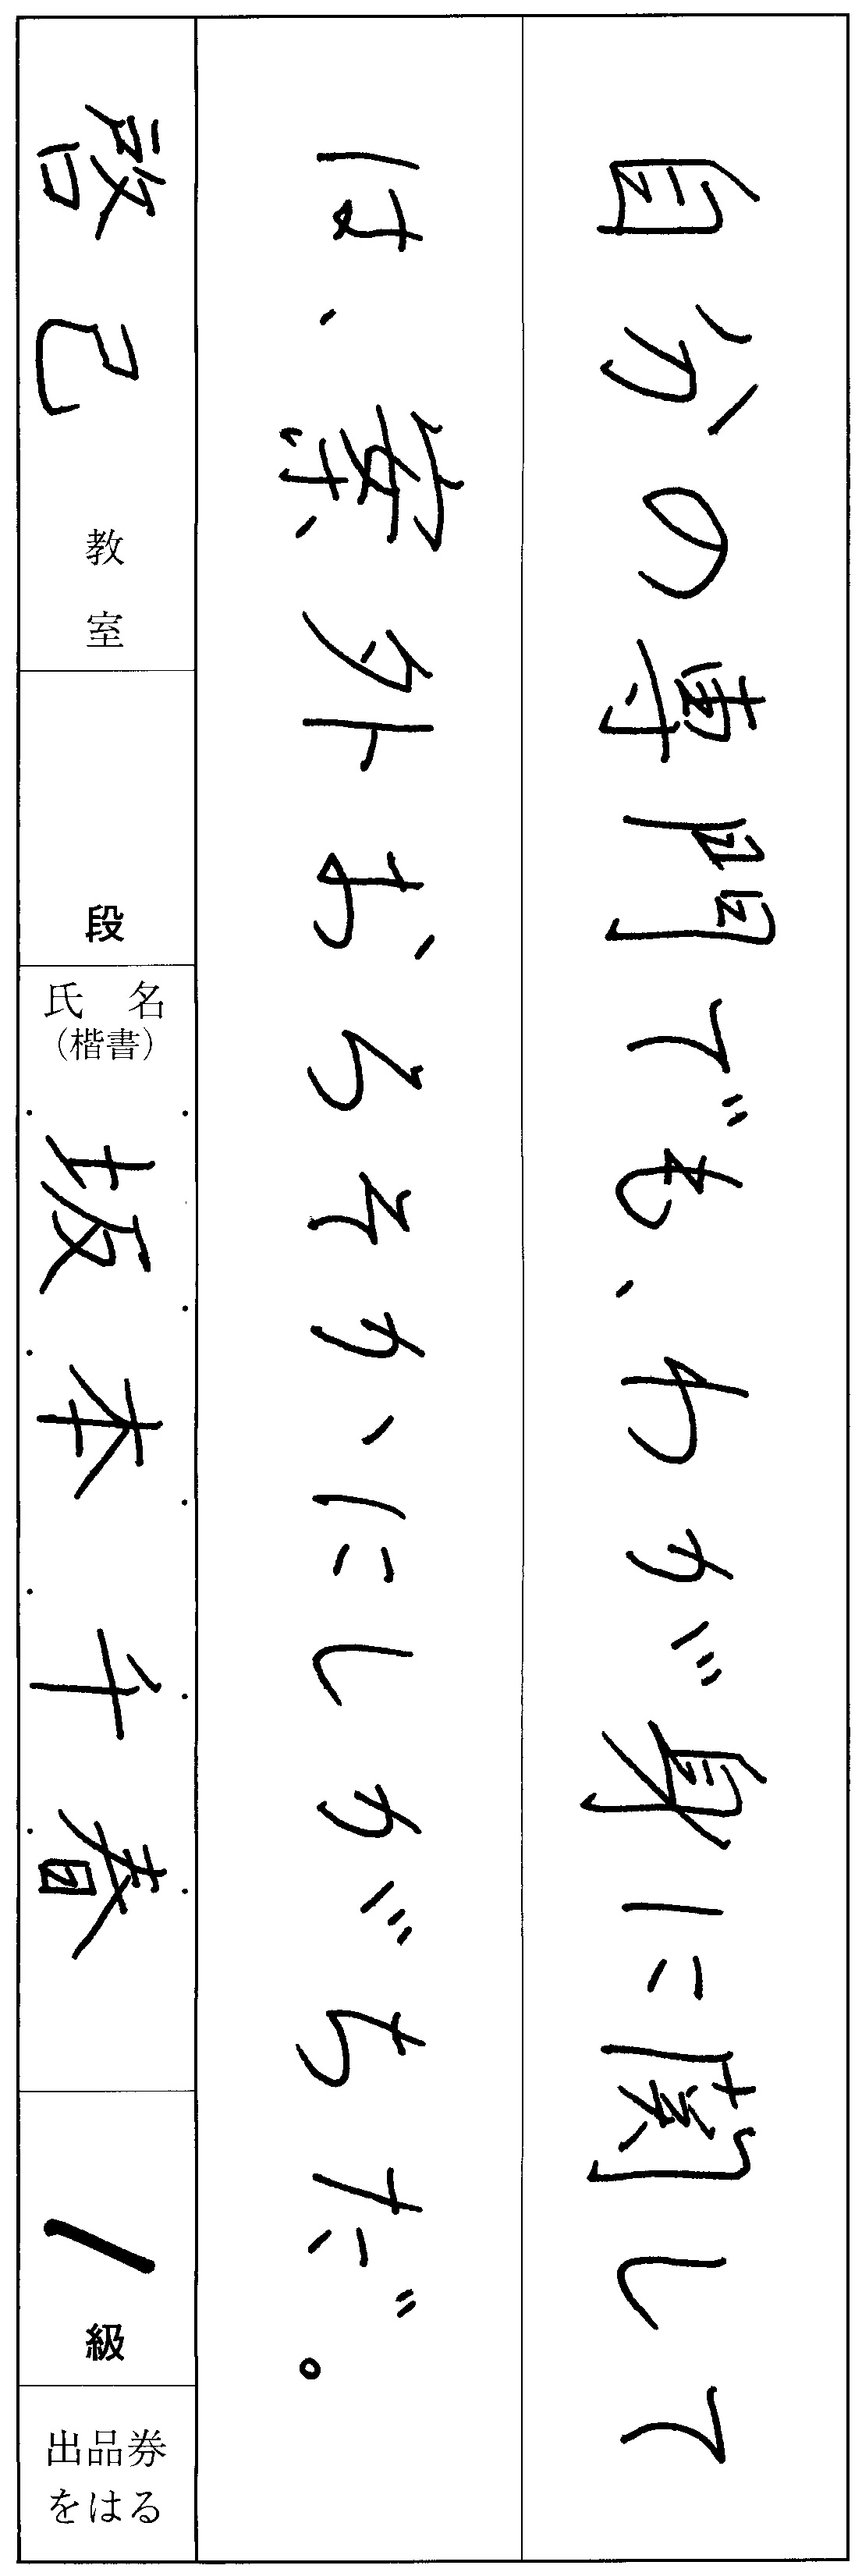 自分の専門でも、わが身に関して
は、案外おろそかにしがちだ。
啓己教室
段
氏名
（楷書）
坂本千春
1級
出品券
をはる